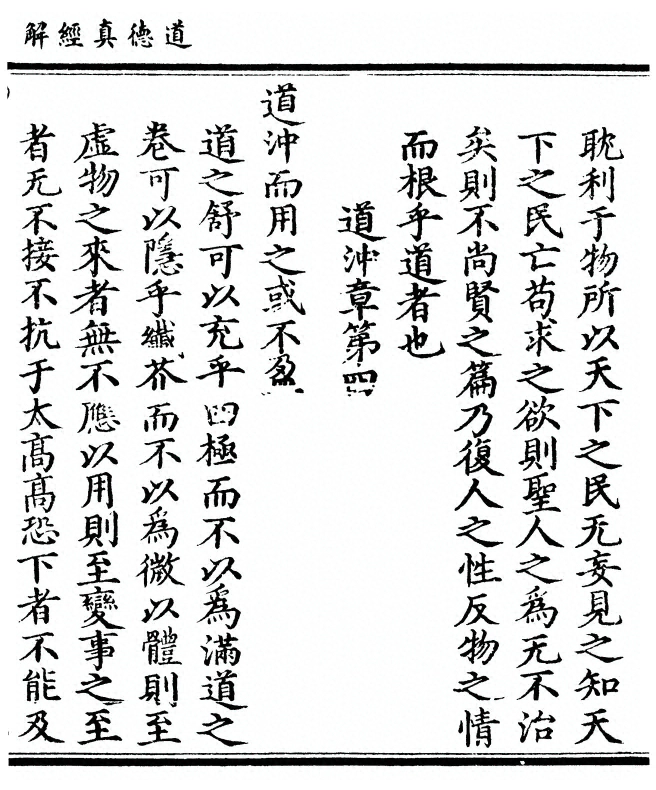 道德真經解
耽利于物所以天下之民无妄見之知天
下之民亡苟求之欲則聖人之爲无不治
矣則不尚賢之篇乃復人之性反物之情
而根乎道者也
道沖章第四
道沖而用之或不盈
道之舒可以充乎四極而不以爲滿道之
卷可以隱乎纖芥而不以爲微以體則至
虛物之來者無不應以用則至變事之至
者无不接不抗于太高高恐下者不能及